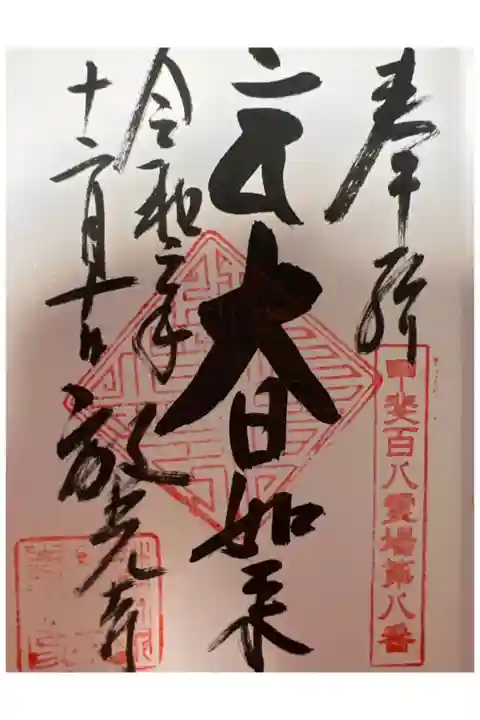 奉拝
甲斐百八霊場第八番
大日如来
令和二年
十二月十日
放光寺